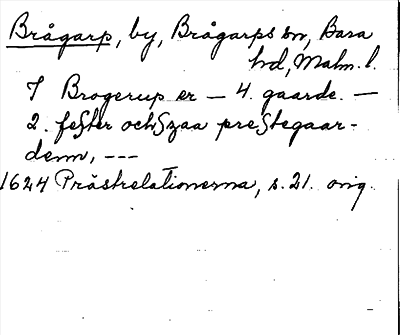 Brågarp, by, Brågarps sn, Bara
hd, Malm. l.
I Brogerup er — 4. gaarde. —
2. fester och szaa prestegaar-
denn, ---
1624 Prästrelationerna, s. 21. orig.